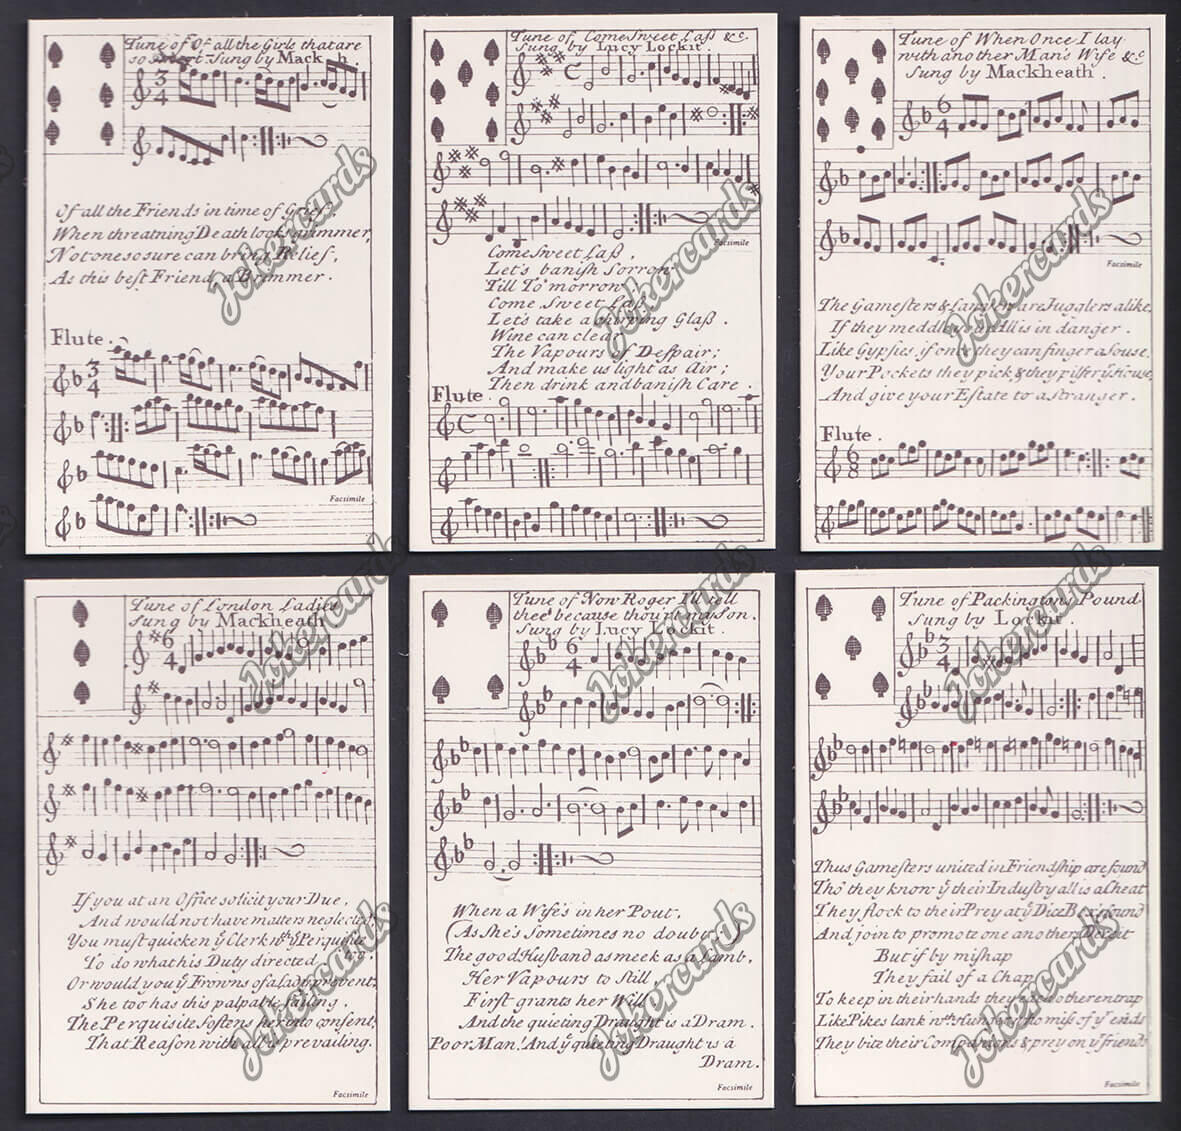 Tune of Of all the Girls that are
so - Sung by Mack h.
3
4
Of all the Friends in time of Grief,
When threatning Death looks grimmer,
Not one so sure can bring Relief,
As this best Friend, a Brimmer.
Flute.
3
4
Facsimile
Jokercards
Tune of Come Sweet Laß &c.
Sung by Lucy Lockit.
Come Sweet Laß,
Let's banish Sorrow
Till To'morrow
Come Sweet Laß
Let's take a chirping Glaß.
Wine can clear
The Vapours of Despair;
And make us light as Air;
Then drink and banish Care.
Flute.
Facsimile
Jokercards
Tune of When Once I lay
with another Man's Wife &c
Sung by Mackheath.
6
4
Facsimile
The Gamesters & Lawyers are Jugglers alike,
If they meddle your All is in danger.
Like Gypsies, if once they can finger a Souse,
Your Pockets they pick, & they pilfer yͤ House,
And give your Estate to a stranger.
Flute.
6
8
Jokercards
Tune of London Ladies
Sung by Mackheath
6
4
If you at an Office solicit your Due,
And would not have matters neglected;
You must quicken yͤ Clerk wͭͪ yͤ Perquisite
To do what his Duty directed.
Or would you yͤ Frowns of a lady prevent,
She too has this palpable failing.
The Perquisite softens her into consent;
That Reason with all is prevailing.
Facsimile
Jokercards
Jokercards
Tune of Now Roger I'll tell
thee because thou'rt my Son.
Sung by Lucy Lockit.
6
4
When a Wife's in her Pout,
(As She's Sometimes no doubt)
The good Husband as meek as a Lamb,
Her Vapours to still
First grants her Will
And the quieting Draught is a Dram.
Poor Man! And yͤ quieting Draught is a
Dram.
Facsimile
Jokercards
Jokercards
Tune of Packington's Pound.
Sung by Lockit.
3
4
Thus Gamesters united in Friendship are found
Tho' they know yͭ their Industry all is a Cheat
They flock to their Prey at yͤ Dice Box sound
And join to promote one another's Deceit
But if by mishap
They fail of a Chap
To keep in their hands they each other entrap
Like Pikes lank wͭͪ Hunger, who miss of yͬ ends
They bite their Companions & prey on yͬ friends
Facsimile
Jokercards
Jokercards